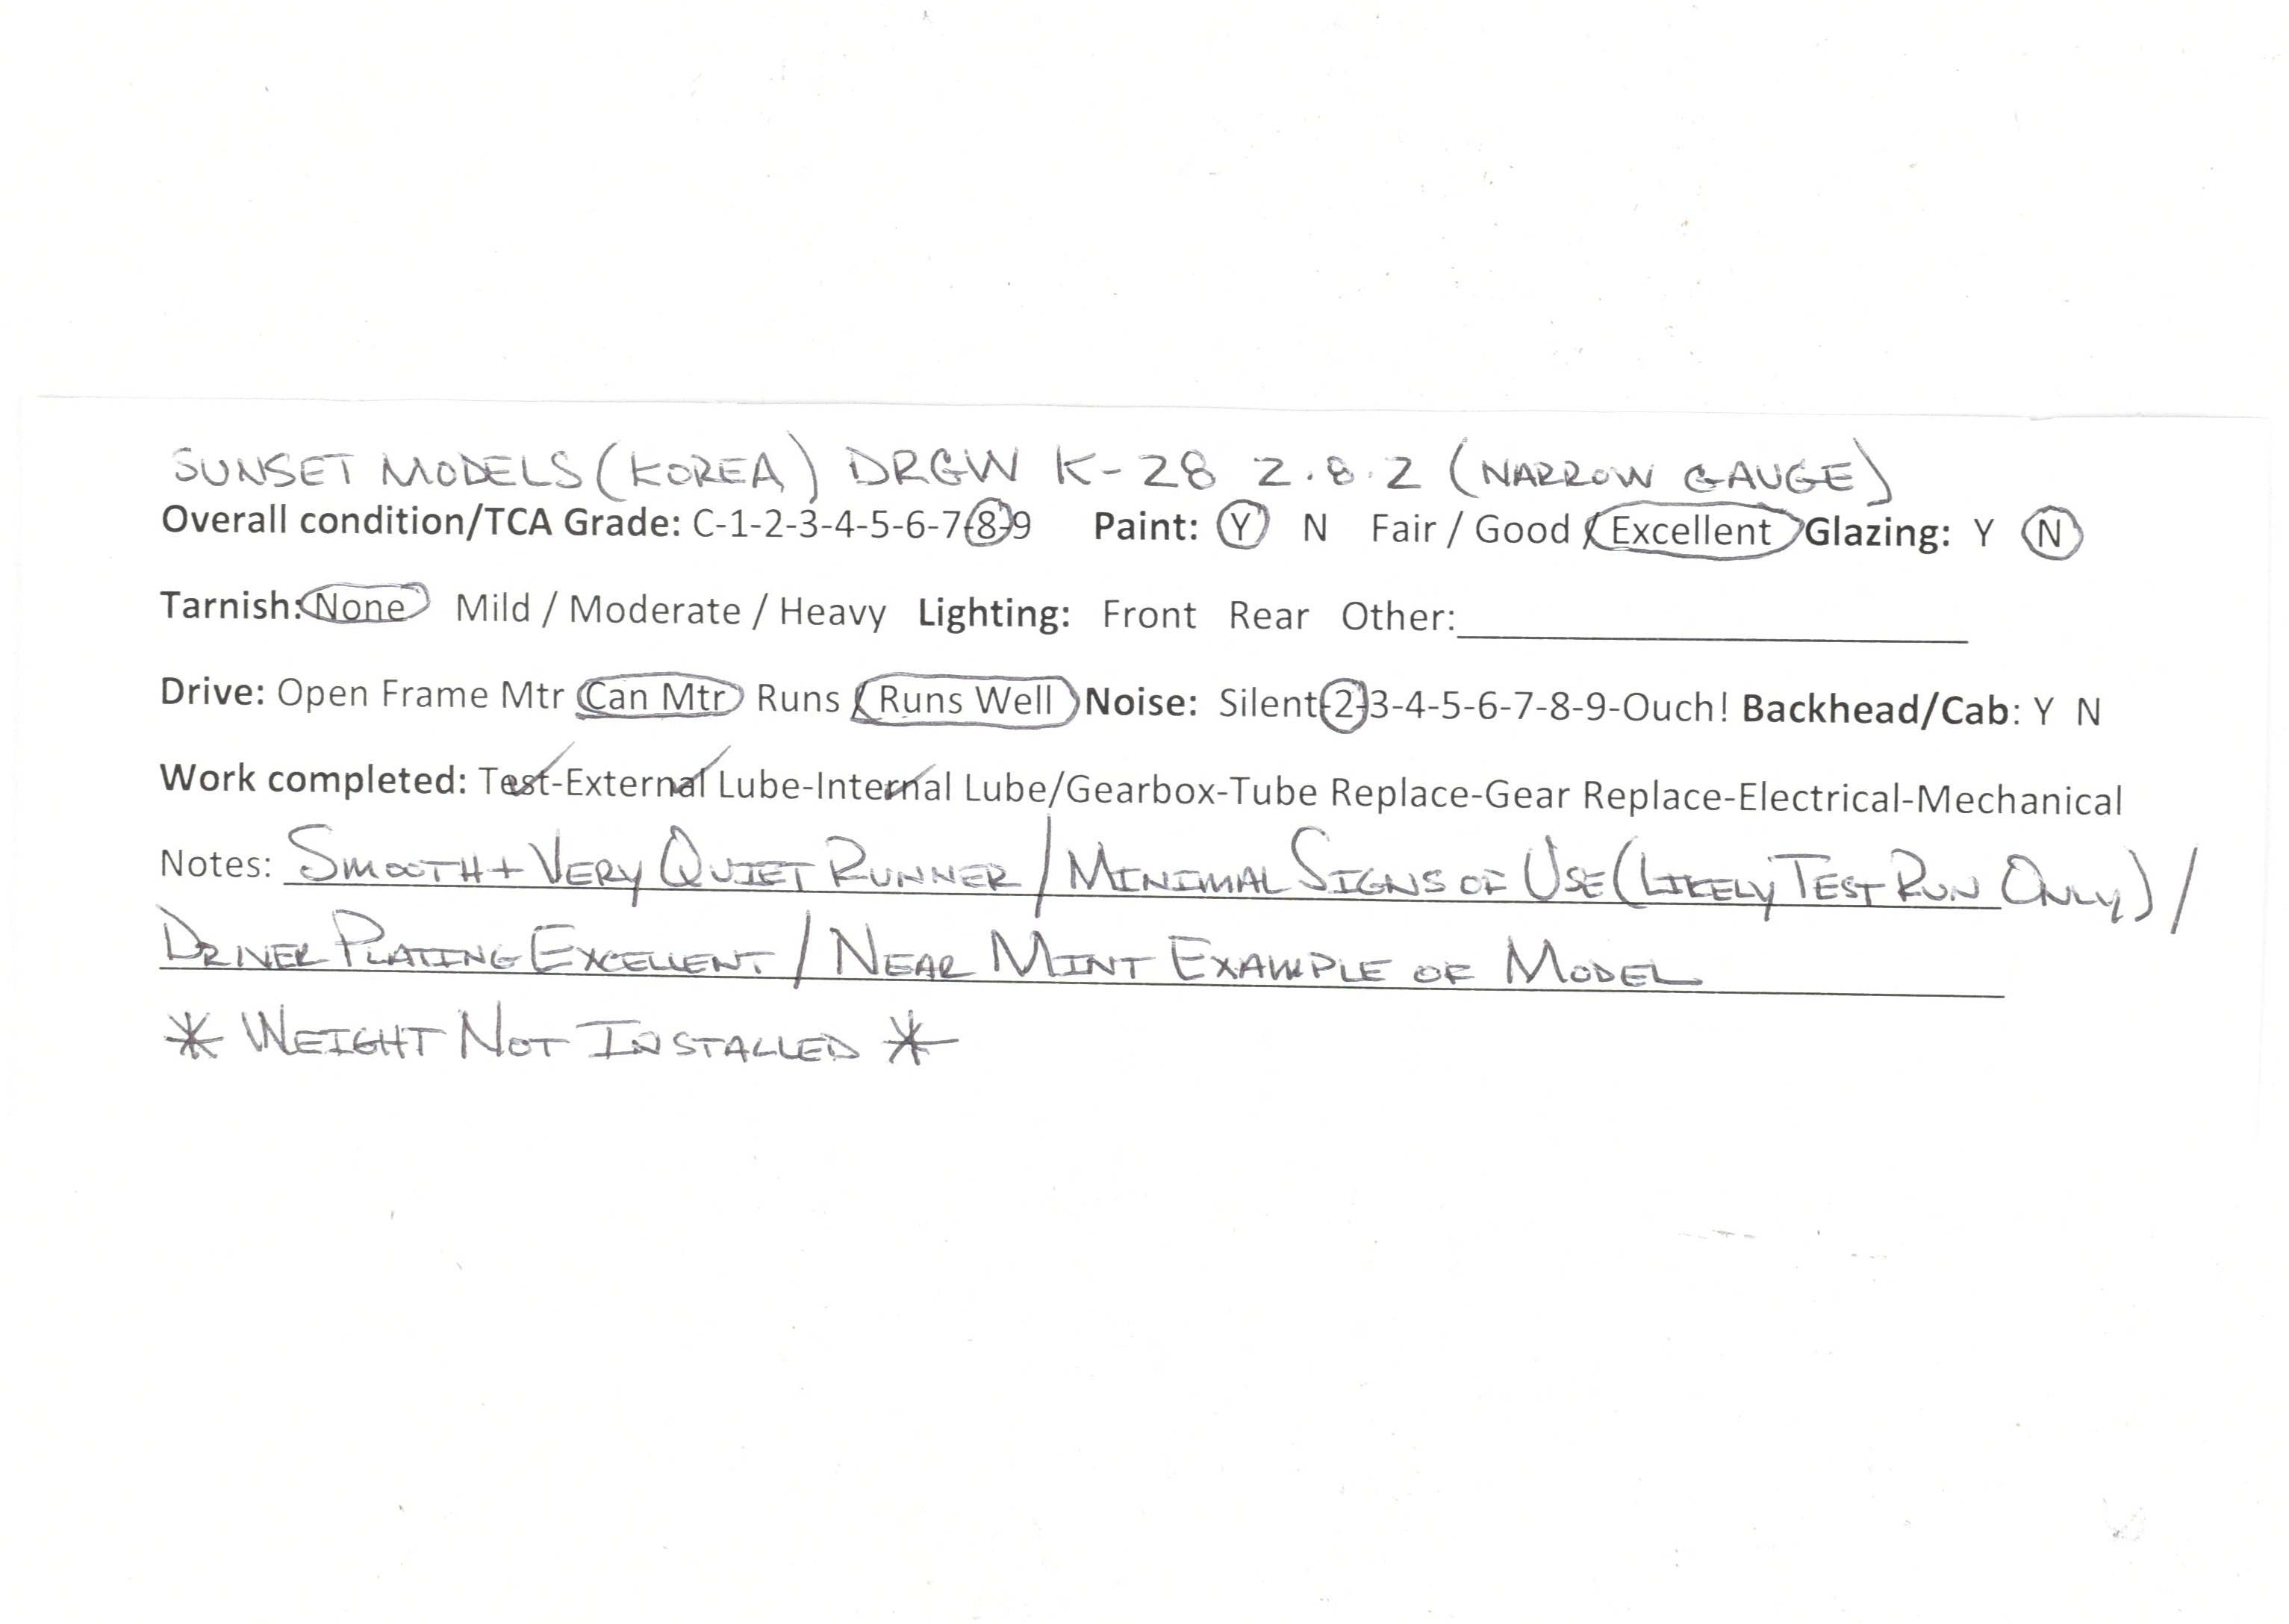 SUNSET MODELS (KOREA) DRGW K-28 2.8.2 (NARROW GAUGE)
Overall condition/TCA Grade: C-1-2-3-4-5-6-7-8-9 Paint: Y N Fair / Good / Excellent Glazing: Y N
Tarnish: None Mild / Moderate / Heavy Lighting: Front Rear Other:
Drive: Open Frame Mtr Can Mtr Runs / Runs Well Noise: Silent-2-3-4-5-6-7-8-9-Ouch! Backhead/Cab: Y N
Work completed: Test-External Lube-Internal Lube/Gearbox-Tube Replace-Gear Replace-Electrical-Mechanical
Notes: SMOOTH + VERY QUIET RUNNER / MINIMAL SIGNS OF USE (LIKELY TEST RUN ONLY) /
DRIVER PLATING EXCELLENT / NEAR MINT EXAMPLE OF MODEL
* WEIGHT NOT INSTALLED *